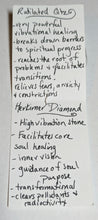 Radiated Citrine
- very powerful
vibrational healing
- breaks down barriers
to spiritual progress
- reaches the root of
problems & facilitates
transitions.
relieves fears, anxiety
& constrictions
Herkimer Diamond
- High vibration stone
- Facilitates core
soul healing
- inner vision
- guidance of soul
purpose
- transformational
- clears pollutants &
radioactivity